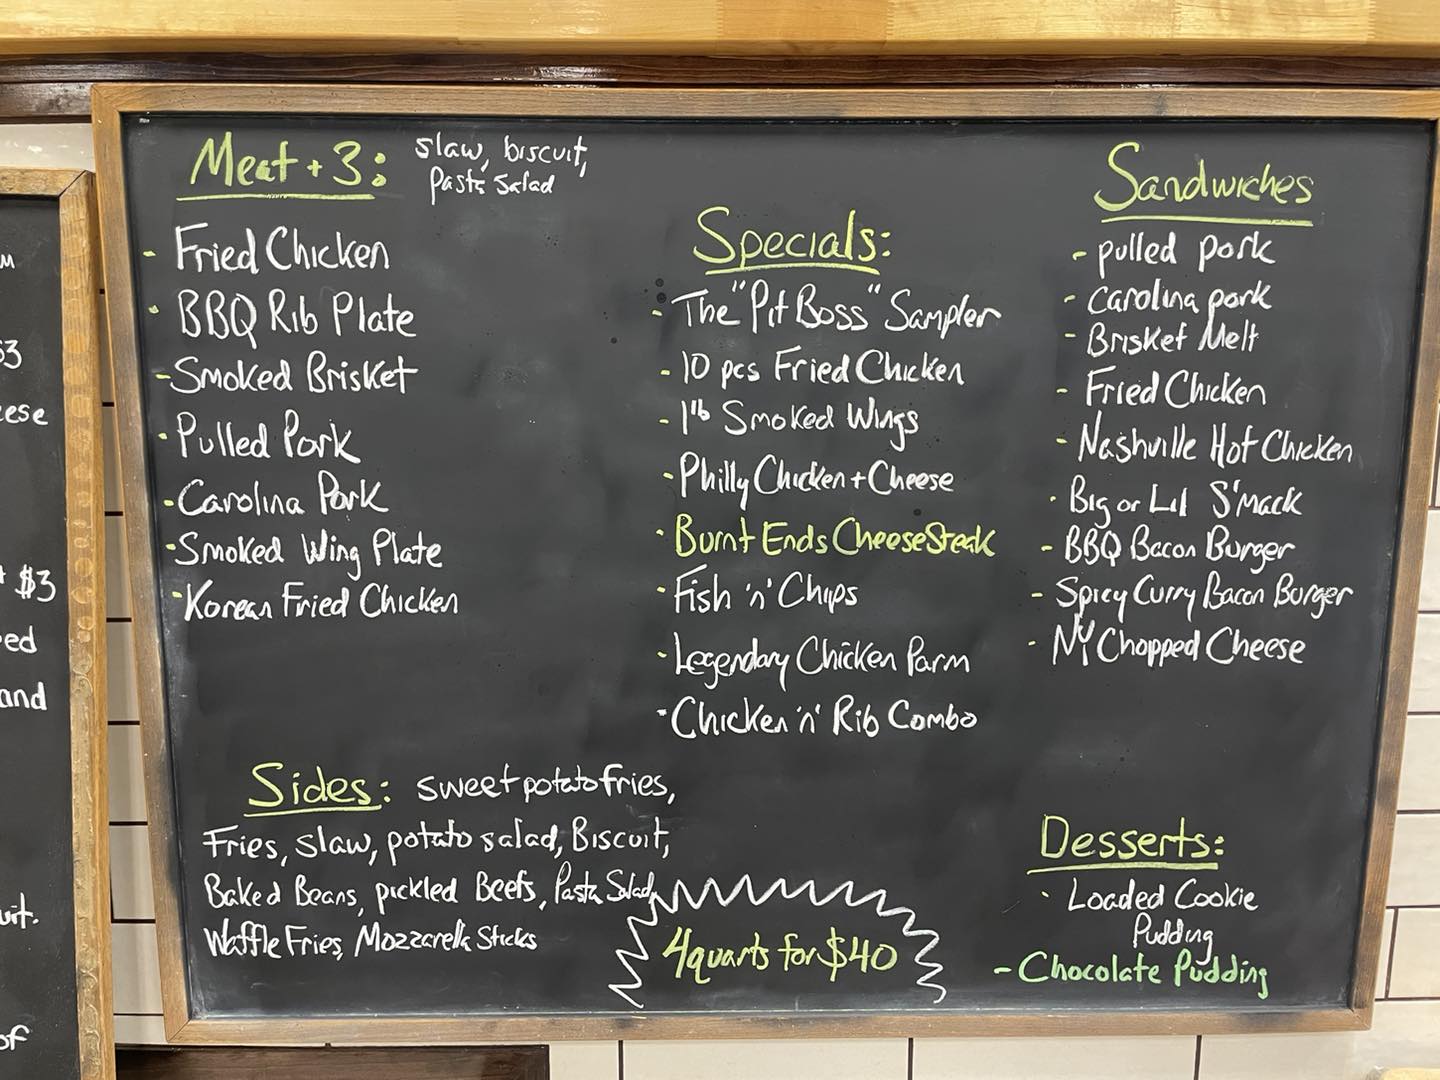 Meat + 3:
slaw, biscuit,
pasta salad
- Fried Chicken
- BBQ Rib Plate
- Smoked Brisket
- Pulled Pork
- Carolina Pork
- Smoked Wing Plate
- Korean Fried Chicken
Specials:
- The "Pit Boss" Sampler
- 10 pcs Fried Chicken
- 1lb Smoked Wings
- Philly Chicken + Cheese
- Burnt Ends CheeseSteak
- Fish 'n' Chips
- Legendary Chicken Parm
- Chicken 'n' Rib Combo
Sandwiches
- pulled pork
- carolina pork
- Brisket Melt
- Fried Chicken
- Nashville Hot Chicken
- Big or Lil S'mack
- BBQ Bacon Burger
- Spicy Curry Bacon Burger
- NY Chopped Cheese
Sides: sweet potato fries,
Fries, slaw, potato salad, Biscuit,
Baked Beans, pickled Beets, Pasta Salad,
Waffle Fries, Mozzarella Sticks
4 quarts for $40
Desserts:
- Loaded Cookie
Pudding
- Chocolate Pudding
$3
ed
and
of